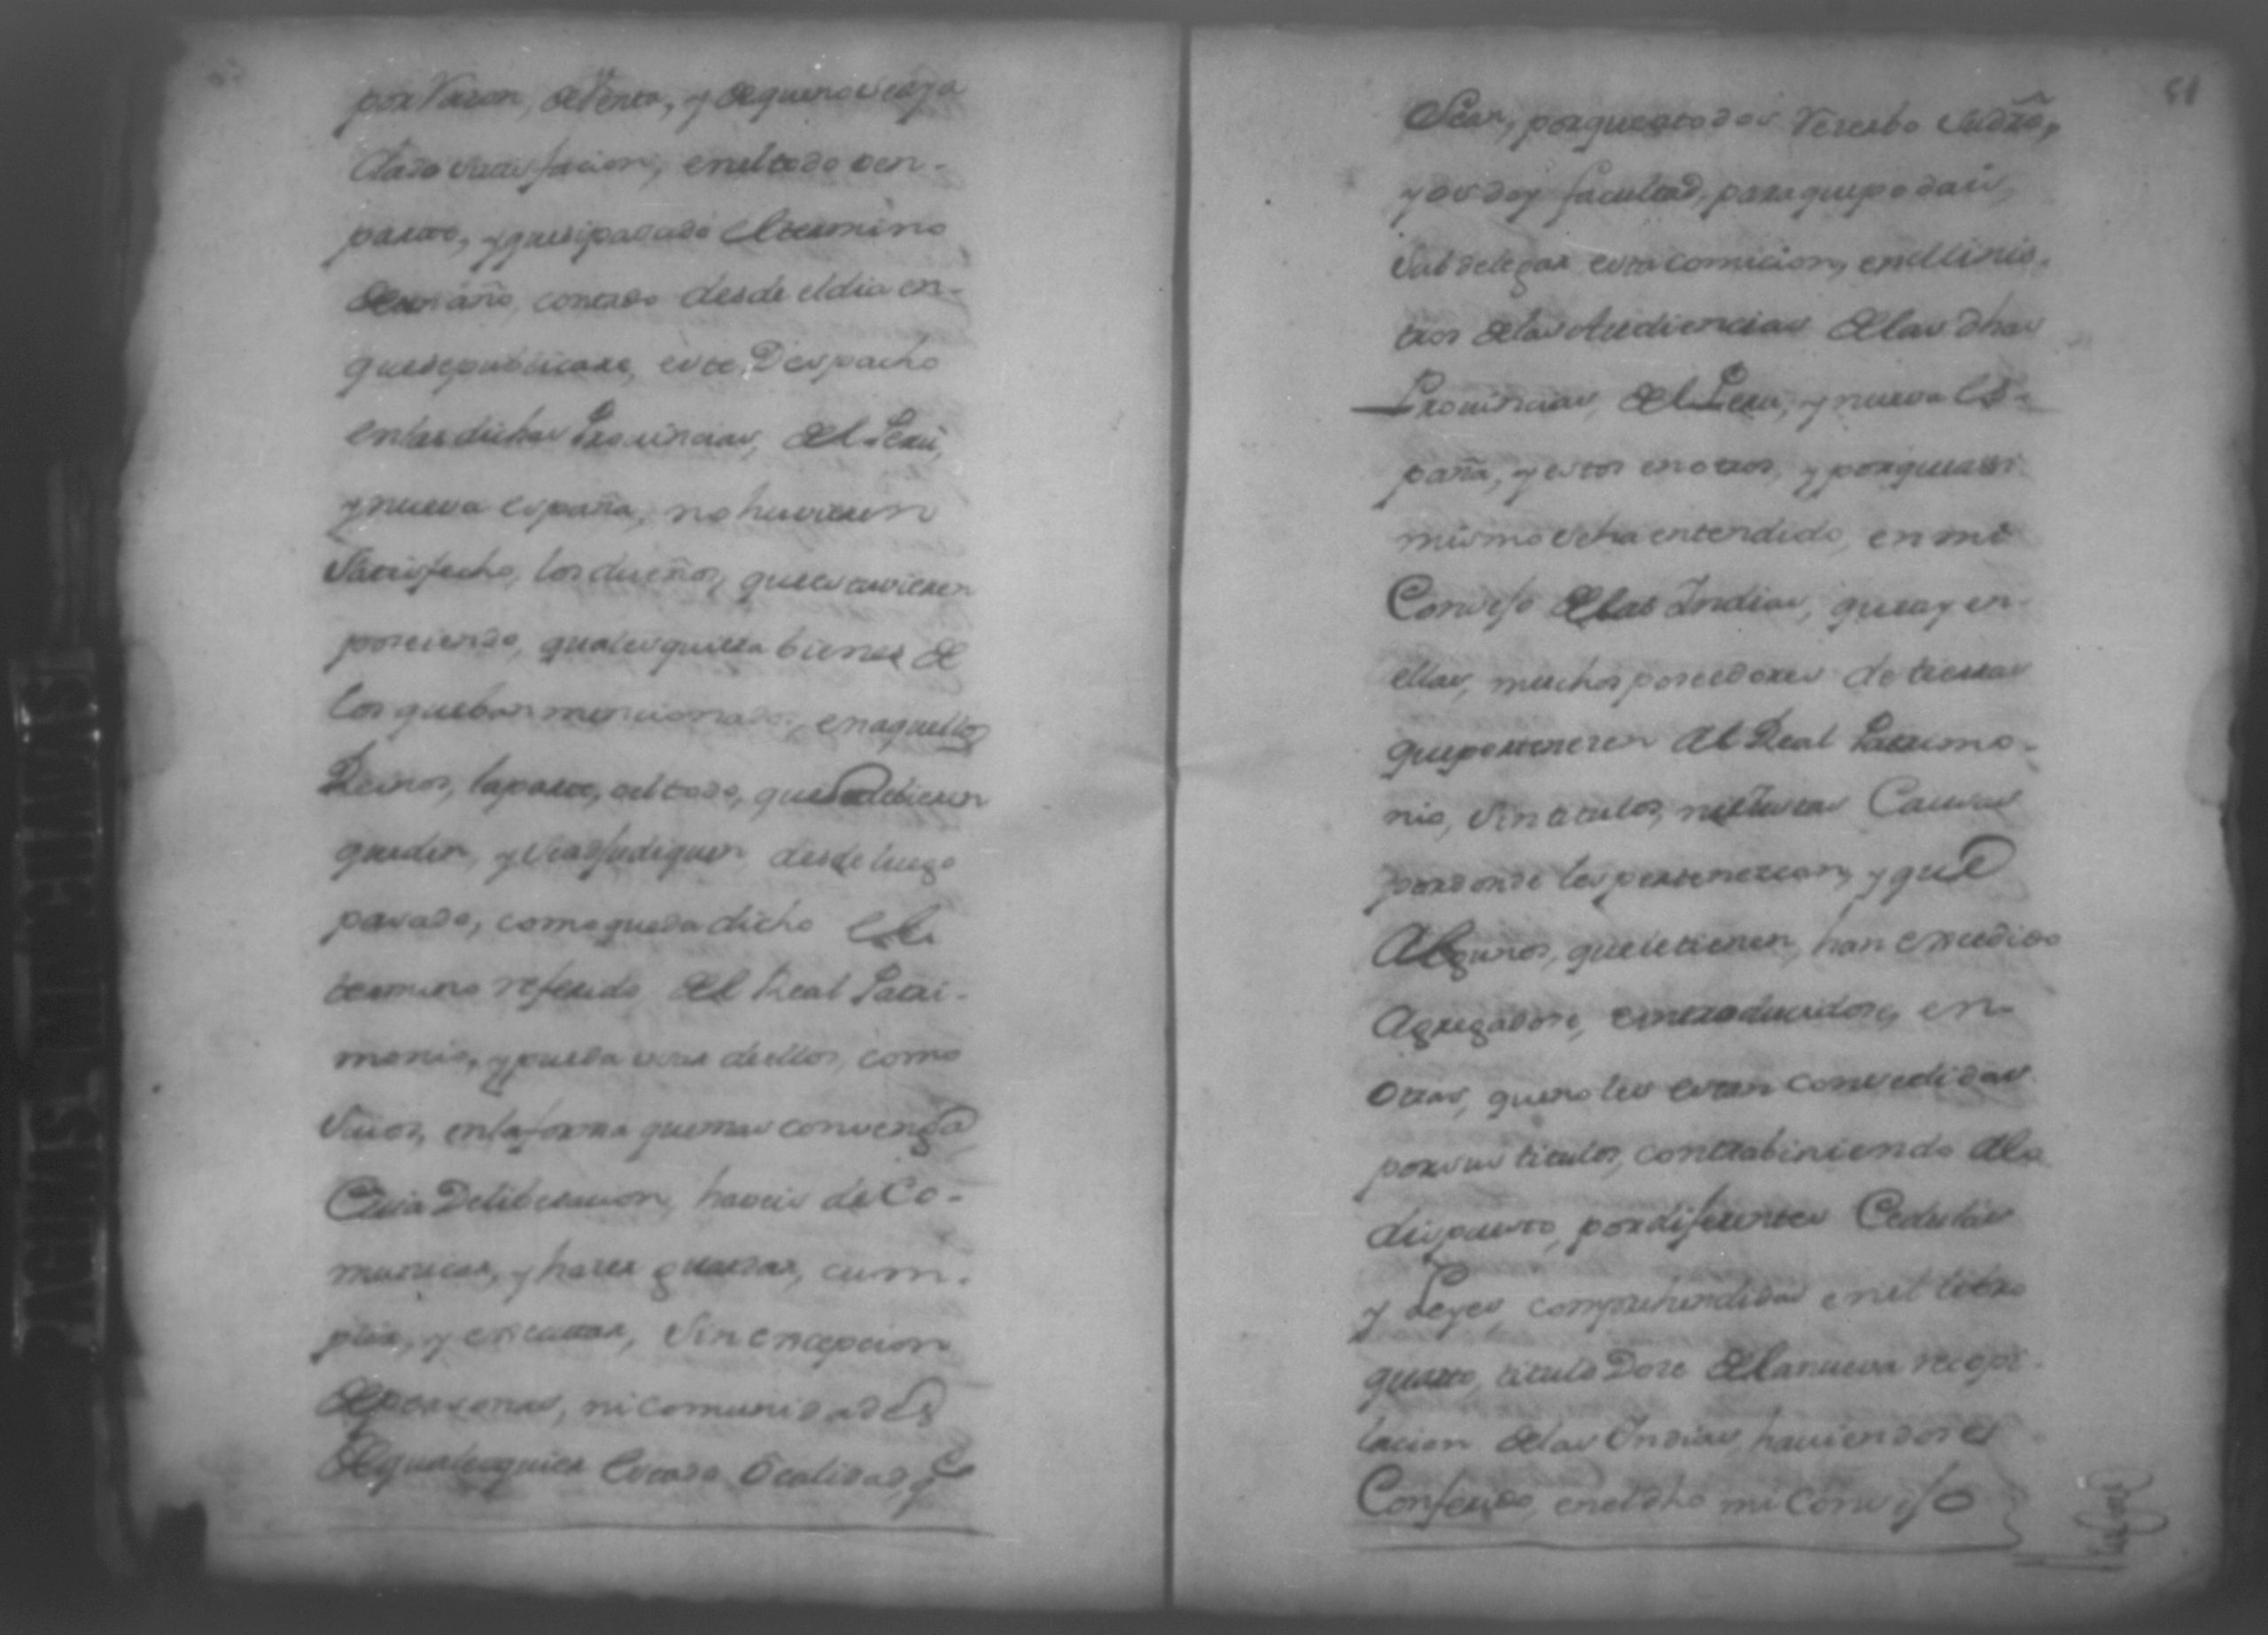 por razon, de venta, y de que no se aya
dado satisfacion, en el todo o en
parte, y que si pasado el termino
de un año, contado desde el dia en-
que se publicare, este Despacho
en las dichas Prouincias, del Peru,
y nueva españa, no huvieren
satisfecho, los dueños, que estuvieren
poseiendo, qualesquiera bienes de
los que ban mencionados, en aquellos
Reinos, la parte, o el todo, que debieren
queden, y se adjudiquen desde luego
pasado, como queda dicho el
termino referido al Real Patri-
monio, y pueda usar de ellos, como
suios, en la forma que mas convenga
Cuia Deliberacion, haveis de Co-
municar, y hacer guardar, cum-
plir, y executar, sin excepcion
de personas, ni comunidades
de qualesquier estado o calidad q.e
51
Sean, porque a todos reserbo su dro,
y os doy facultad, para que podais,
subdelegar esta comicion, en Minis-
tros de las Audiencias de las dhas
Prouincias, del Peru, y nueva Es-
paña, y estos en otros, y porque assi
mismo se ha entendido, en mi
Consejo de las Indias, que ay en
ellas, muchos poseedores de tierras
que pertenecen al Real Patrimo-
nio, sin titulos, ni Justas Causas
por donde les pertenezcan, y que
Algunos, que le tienen, han excedido
Agregadose, e introducidose, en
otras, que no les estan concedidas
por sus titulos, contrabiniendo a lo
dispuesto, por diferentes Cedulas
y Leyes, comprehendidas en el libro
quarto, titulo Doze de la nueva recopi-
lacion de las Indias, haviendose
Conferido, en el dho mi Consejo